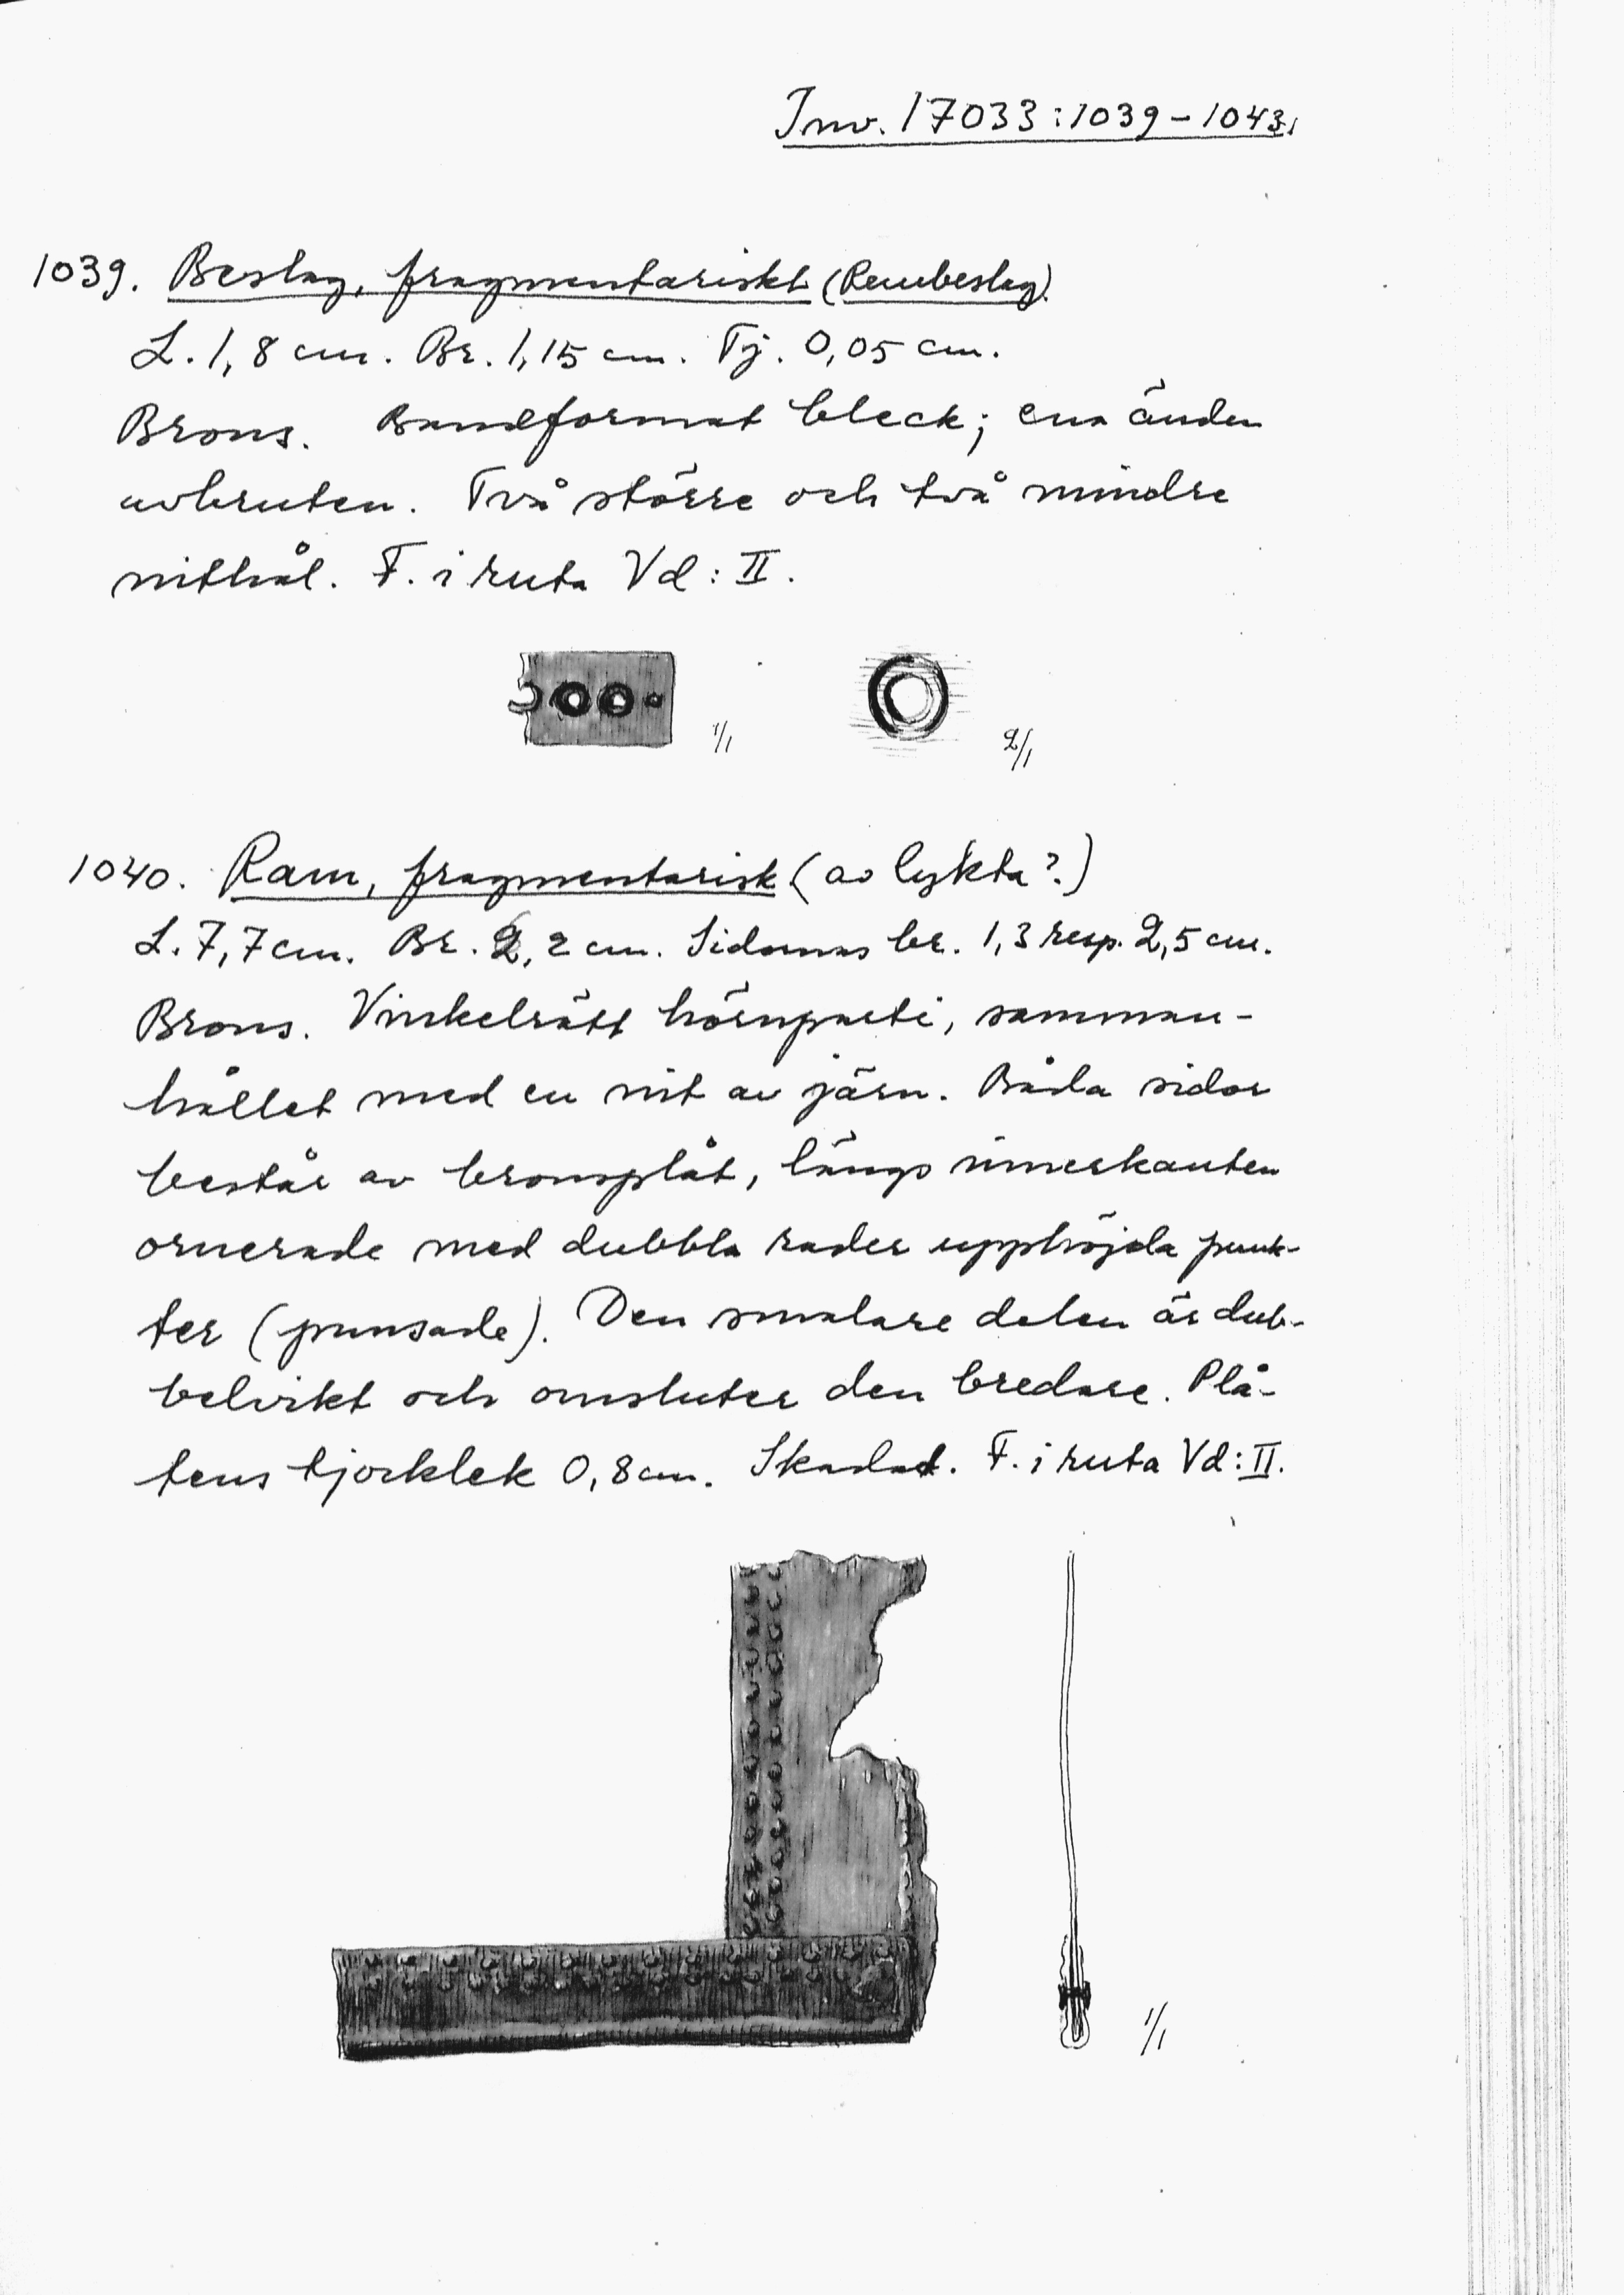 Inv. 17033:1039-1043.
1039. Beslag, fragmentariskt (Rembeslag).
L. 1,8 cm. Br. 1,15 cm. Tj. 0,05 cm.
Brons. Bandformat bleck; ena änden
avbruten. Två större och två mindre
nithål. F. i ruta Vd: II.
1/1
2/1
1040. Ram, fragmentarisk (av lykta?)
L. 7,7 cm. Br. 2,2 cm. Sidornas br. 1,3 resp. 2,5 cm.
Brons. Vinkelrätt hörnparti, samman-
hållet med en nit av järn. Båda sidor
består av bronsplåt, längs innerkanten
ornerade med dubbla rader upphöjda punk-
ter (punsade). Den smalare delen är dub-
belvikt och omsluter den bredare. Plå-
tens tjocklek 0,8 cm. Skadad. F. i ruta Vd: II.
1/1